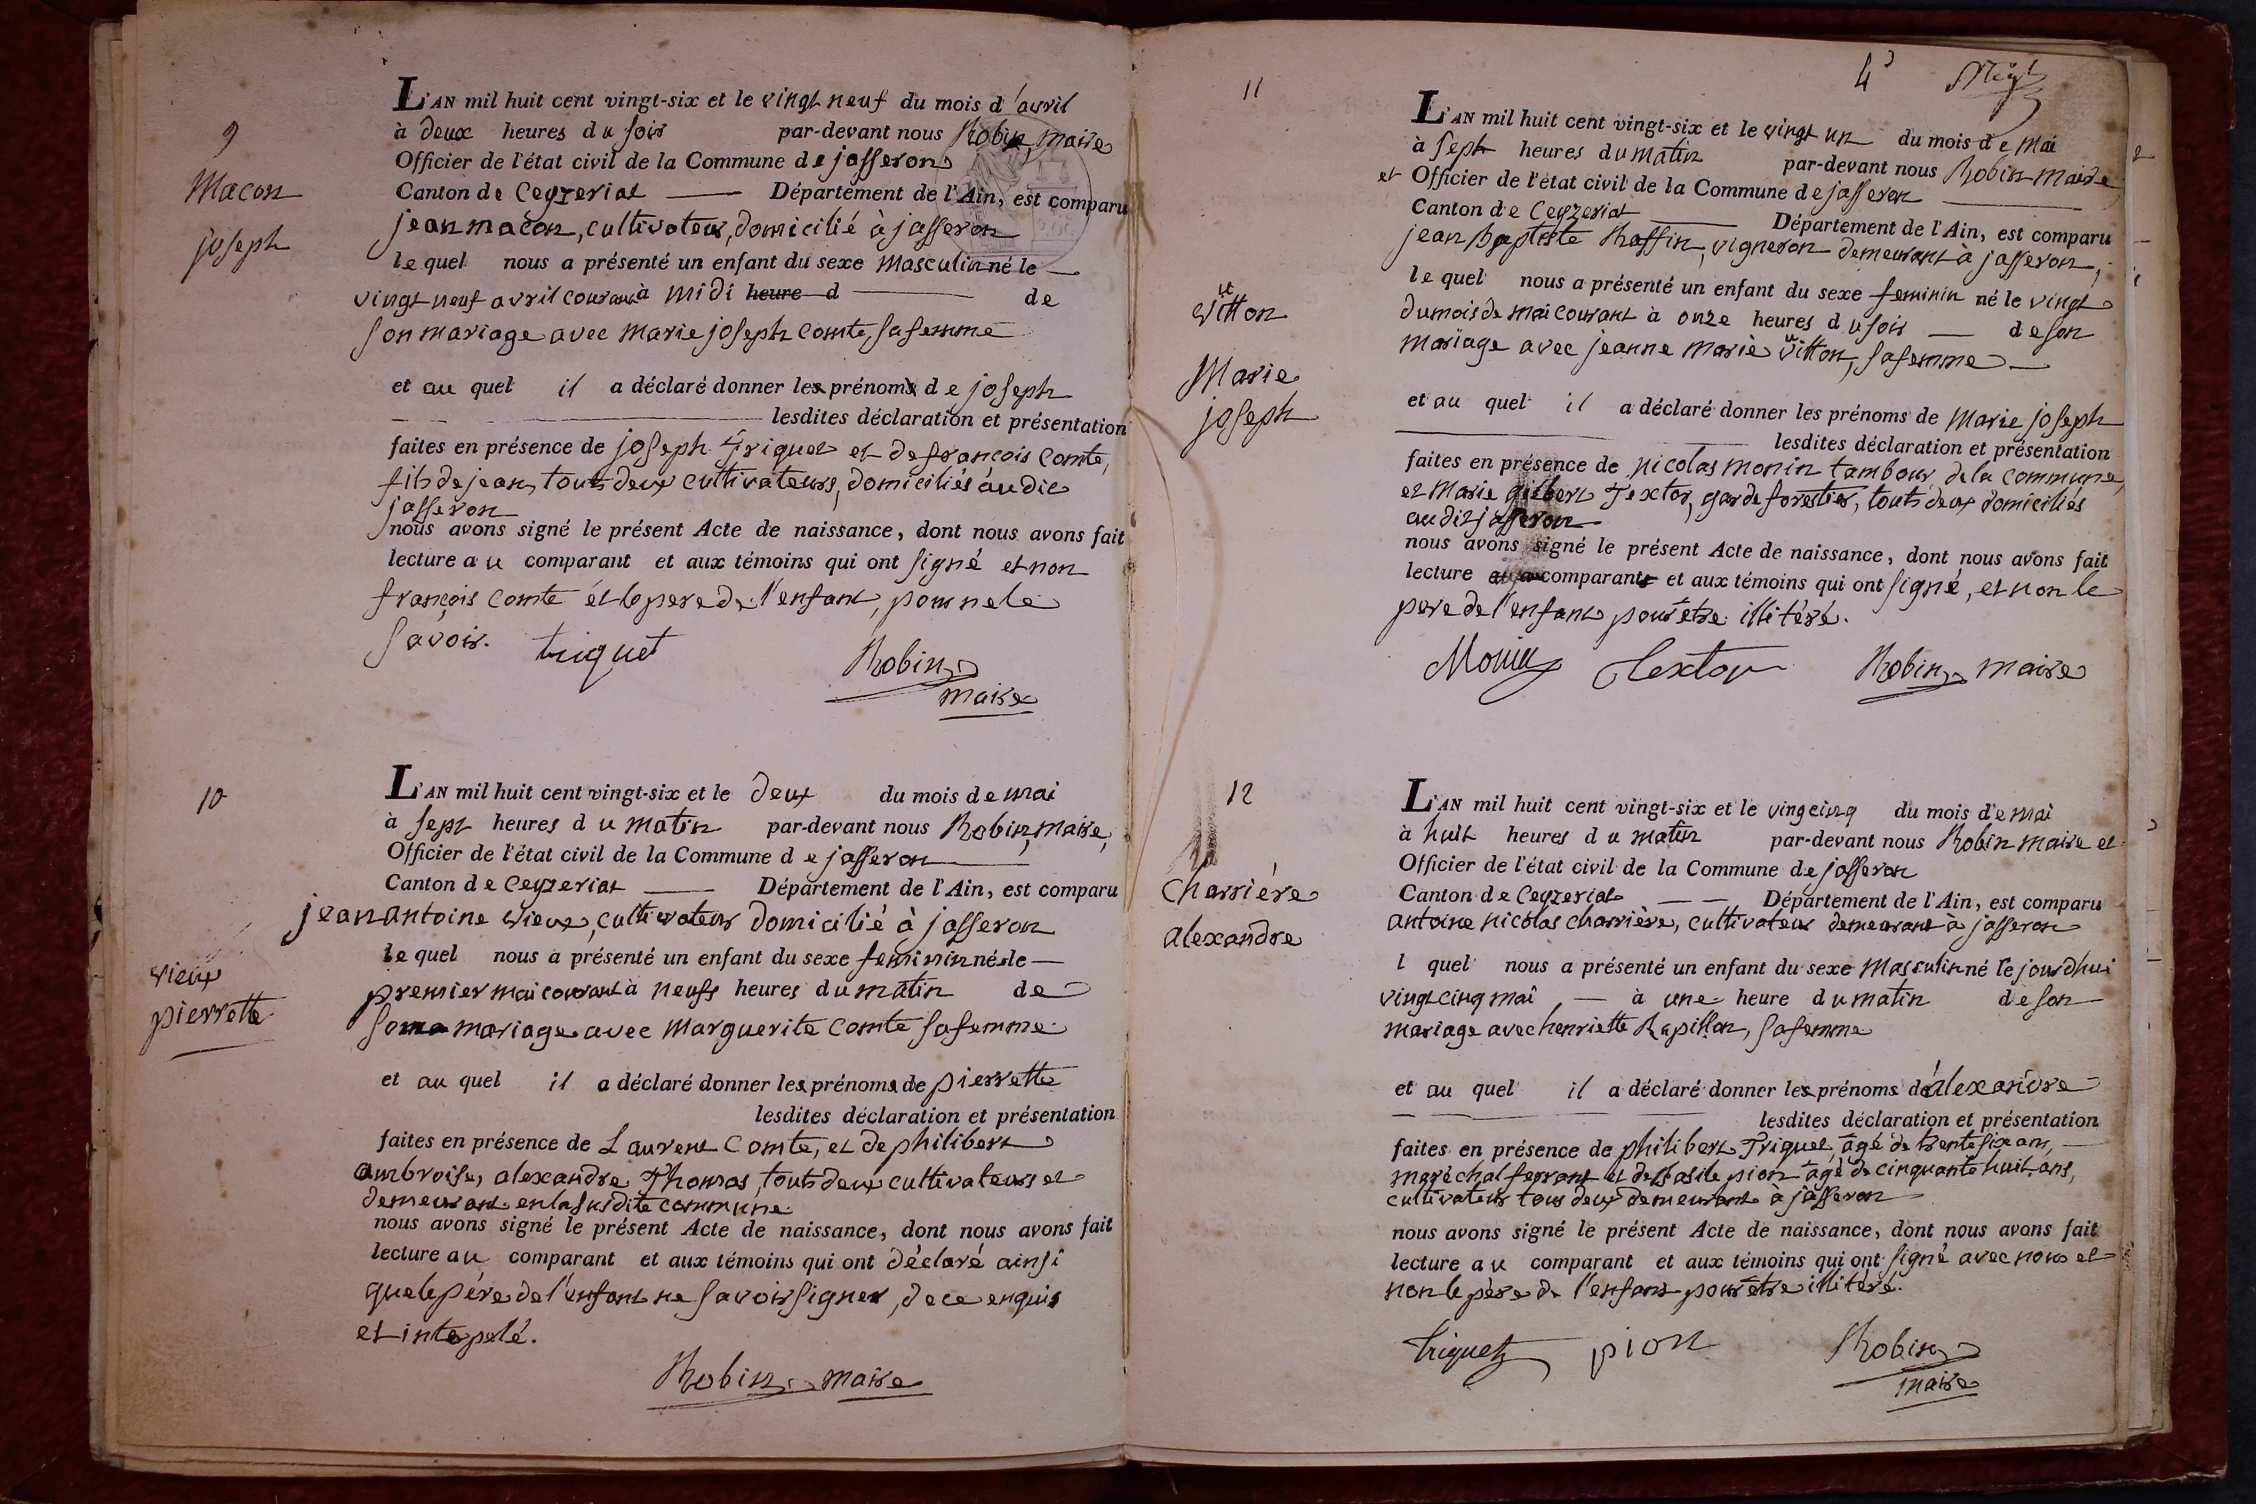 9
Macon
joseph
L'AN mil huit cent vingt-six et le vingt neuf du mois d'avril
à deux heures du soir par-devant nous Robin, maire
Officier de l'état civil de la Commune de jasseron
Canton de Ceyzeriat Département de l'Ain, est comparu
jean macon, cultivateur, domicilié à jasseron
le quel nous a présenté un enfant du sexe masculin né le
vingt neuf avril courant à midi heure d de
son mariage avec marie joseph comte, sa femme
et au quel il a déclaré donner les prénoms de joseph
lesdites déclaration et présentation
faites en présence de joseph Triquet et de françois comte,
fils de jean, touts deux cultivateurs, domiciliés audit
jasseron
nous avons signé le présent Acte de naissance, dont nous avons fait
lecture au comparant et aux témoins qui ont signé et non
françois comte et le pere de l'enfant, pour ne le
savoir.
triquet
Robin
maire
10
vieux
pierrette
L'AN mil huit cent vingt-six et le deux du mois de mai
à sept heures du matin par-devant nous Robin, maire,
Officier de l'état civil de la Commune de jasseron
Canton de Ceyzeriat Département de l'Ain, est comparu
jean antoine vieux, cultivateur domicilié à jasseron
le quel nous a présenté un enfant du sexe feminin née le
premier mai courant à neufs heures du matin de
son mariage avec marguerite comte sa femme
et au quel il a déclaré donner les prénoms de pierrette
lesdites déclaration et présentation
faites en présence de Laurent Comte, et de philibert
ambroise, alexandre Thomas, touts deux cultivateurs et
demeurant en la susdite commune
nous avons signé le présent Acte de naissance, dont nous avons fait
lecture au comparant et aux témoins qui ont déclaré ainsi
que le père de l'enfant ne savoir signer, de ce enquis
et interpelé.
Robin maire
4
11
vitton
Marie
joseph
L'AN mil huit cent vingt-six et le vingt un du mois de mai
à sept heures du matin par-devant nous Robin maire
et Officier de l'état civil de la Commune de jasseron
Canton de Ceyzeriat Département de l'Ain, est comparu
jean baptiste Raffin, vigneron demeurant à jasseron,
le quel nous a présenté un enfant du sexe feminin né le vingt
du mois de mai courant à onze heures du soir de son
mariage avec jeanne marie vitton, sa femme
et au quel il a déclaré donner les prénoms de Marie joseph
lesdites déclaration et présentation
faites en présence de nicolas monin tambour de la commune,
et marie gilbert Textor, garde forestier, touts deux domiciliés
au dit jasseron
nous avons signé le présent Acte de naissance, dont nous avons fait
lecture comparant et aux témoins qui ont signé, et non le
pere de l'enfant pour être illitéré.
Monin Textor Robin maire
12
Charrière
alexandre
L'AN mil huit cent vingt-six et le vingcinq du mois de mai
à huit heures du matin par-devant nous Robin maire et
Officier de l'état civil de la Commune de jasseron
Canton de Ceyzeriat Département de l'Ain, est comparu
antoine nicolas charrière, cultivateur demeurant à jasseron
l quel nous a présenté un enfant du sexe masculin né le jourdhui
vingt cinq mai à une heure du matin de son
mariage avec henriette Rapillon, sa femme
et au quel il a déclaré donner les prénoms d'alexandre
lesdites déclaration et présentation
faites en présence de philibert Triquet, âgé de trente six ans,
maréchal ferrant et de basile pion âgé de cinquante huit ans,
cultivateur tous deux demeurant à jasseron
nous avons signé le présent Acte de naissance, dont nous avons fait
lecture au comparant et aux témoins qui ont signé avec nous et
non le père de l'enfant pour être illitéré.
triquet pion Robin
maire